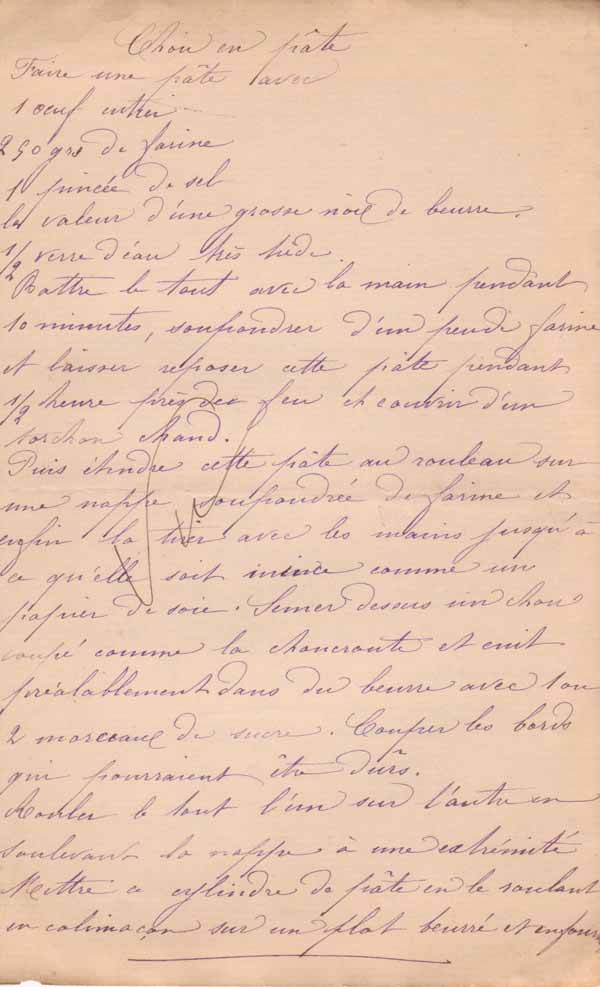 Chou en pâte
Faire une pâte avec
1 œuf entier
250 grs de farine
1 pincée de sel
la valeur d'une grosse noix de beurre.
1/2 verre d'eau très tiède.
Battre le tout avec la main pendant
10 minutes, soupoudrer d'un peu de farine
et laisser reposer cette pâte pendant
1/2 heure près du feu et couvrir d'un
torchon chaud.
Puis étendre cette pâte au rouleau sur
une nappe soupoudrée de farine et
enfin la tirer avec les mains jusqu'à
ce qu'elle soit mince comme un
papier de soie. Semer dessus un chou
coupé comme la choucroute et cuit
préalablement dans du beurre avec 1 ou
2 morceaux de sucre. Couper les bords
qui pourraient être durs.
Rouler le tout l'un sur l'autre en
soulevant la nappe à une extrémité
Mettre ce cylindre de pâte en le roulant
en colimaçon sur un plat beurré et enfourn